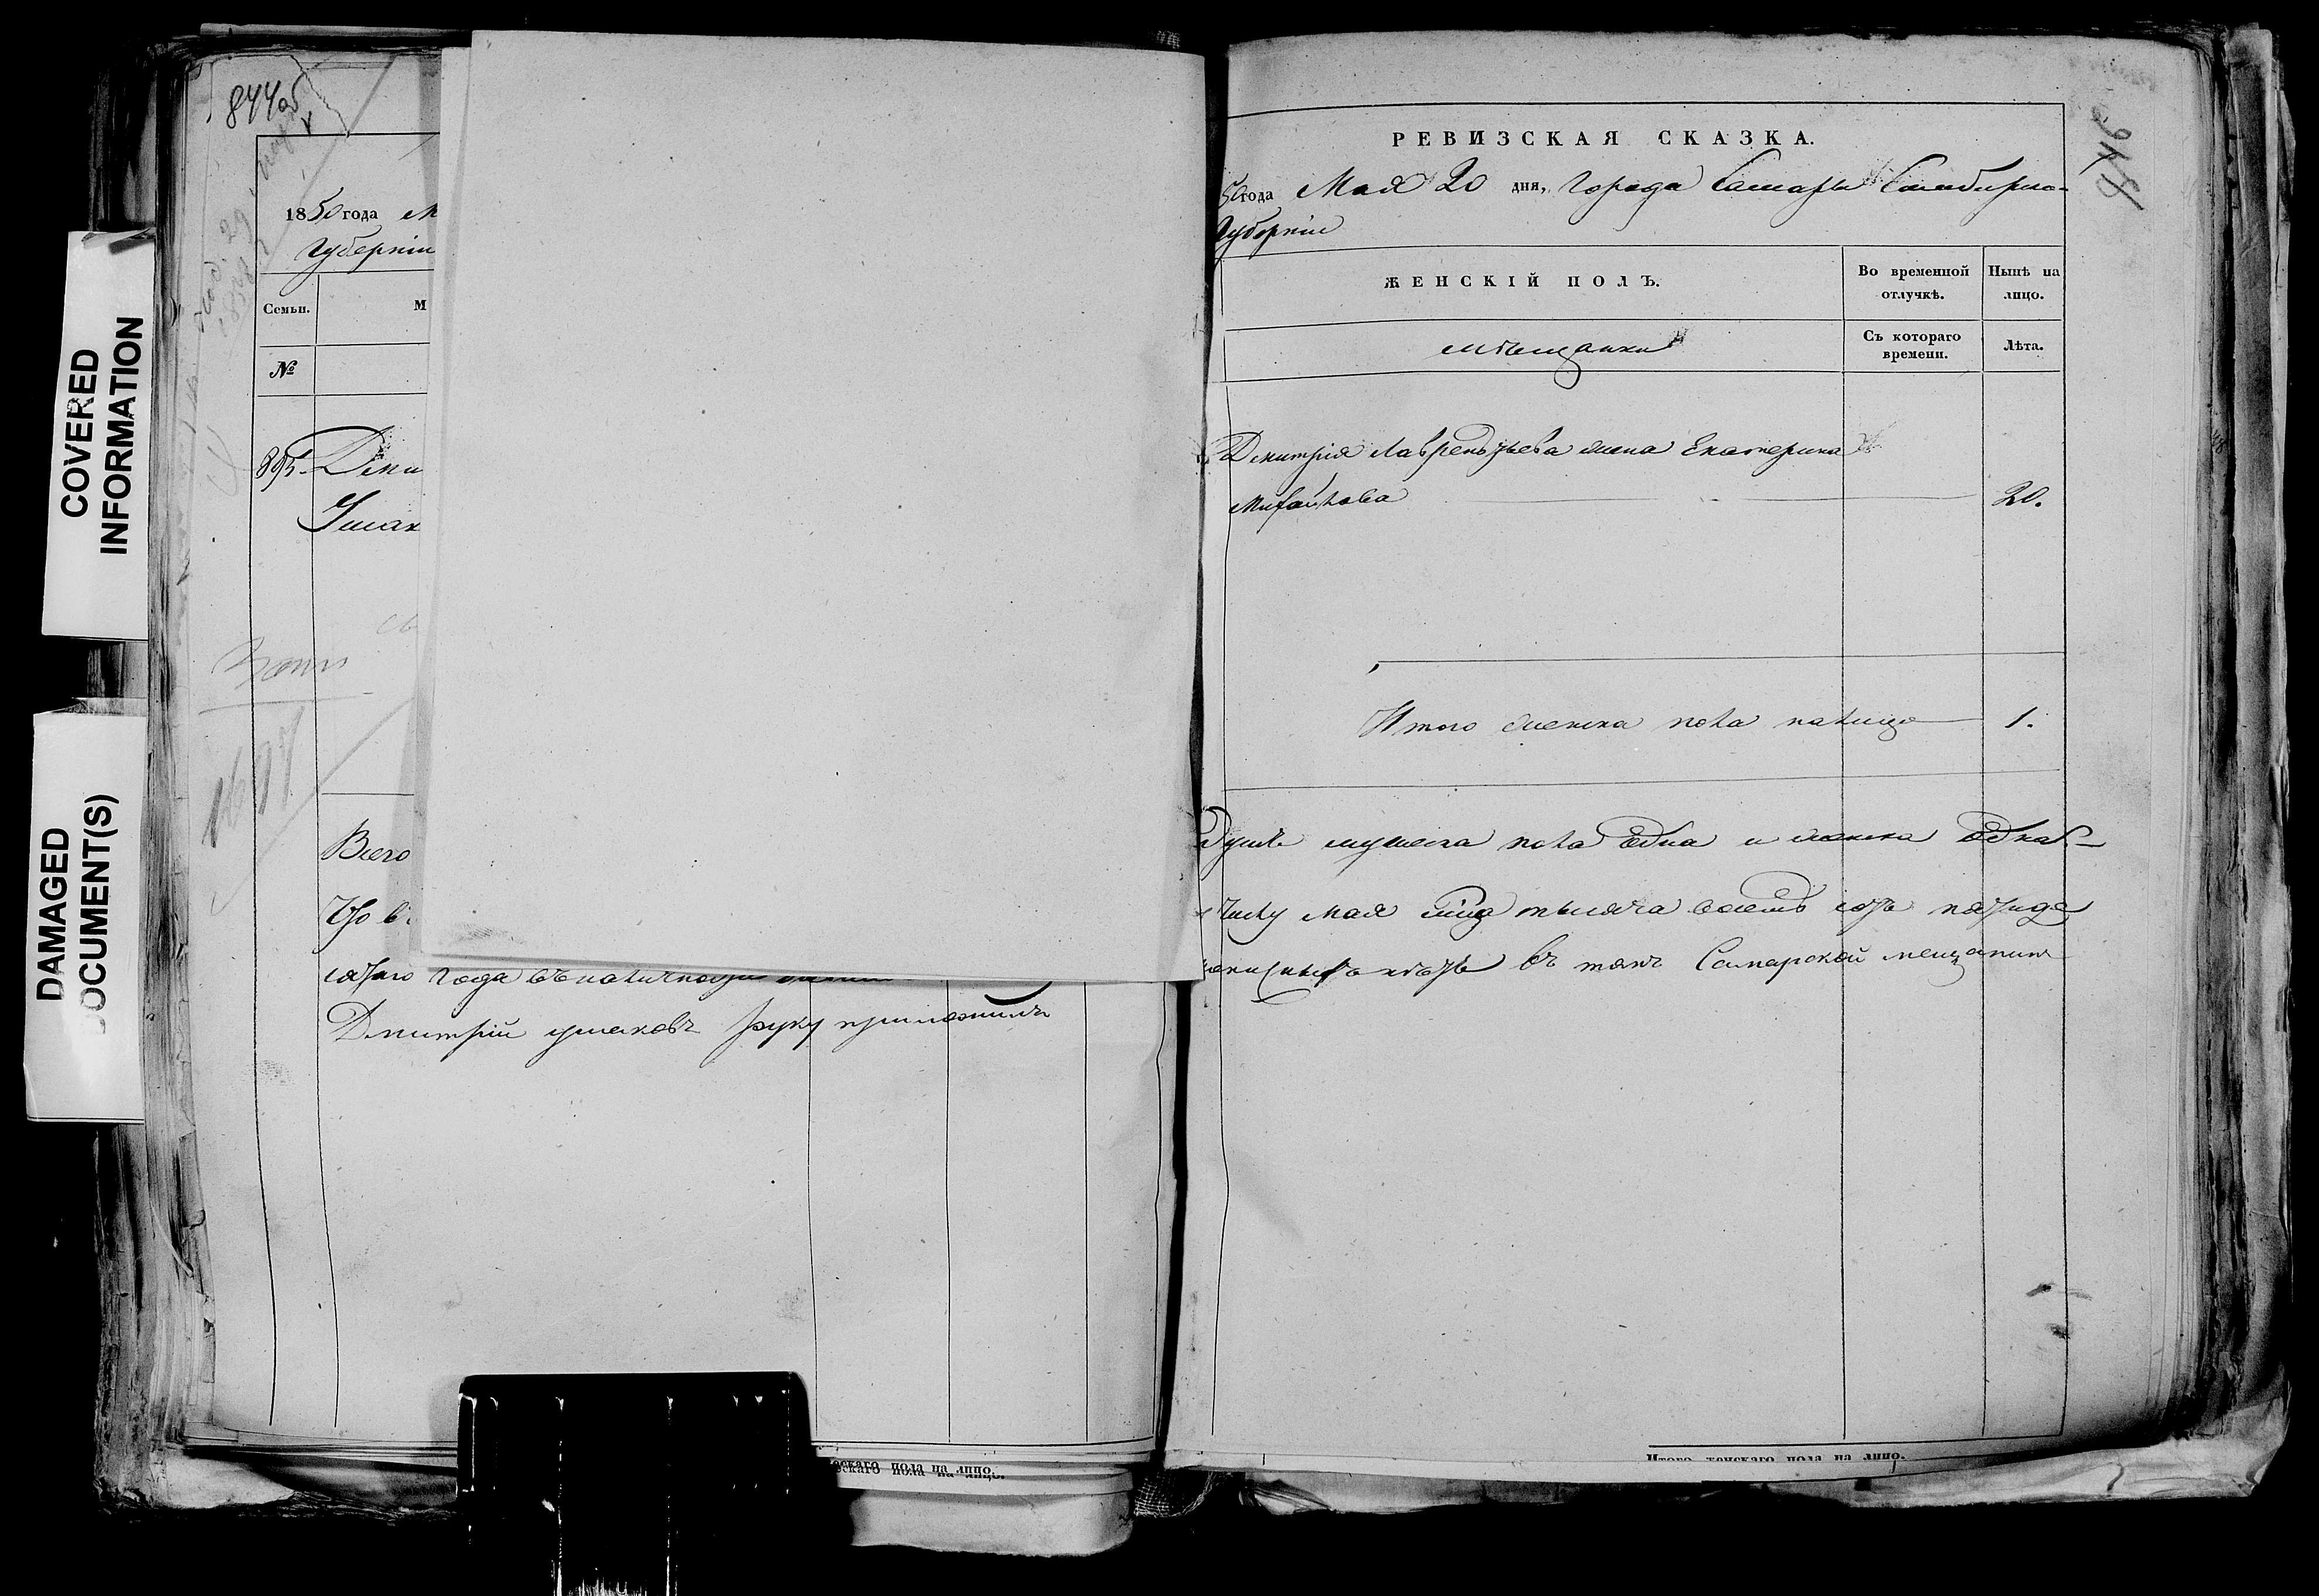 COVERED
INFORMATION
DAMAGED
DOCUMENT(S)
844 об
1850 года М
Губерніи
Семьи.
М
№
895.
Дми
Ушак
Всего
Что в
сятаго года въ наличности
Дмитрій ушаковъ руку приложилъ
РЕВИЗСКАЯ СКАЗКА.
50 года Мая 20 дня, Города Самары Симбирско
Губерніи
ЖЕНСКІЙ ПОЛЪ.
Во временной отлучкѣ.
Нынѣ на лицо.
мѣщанки
Съ котораго времени.
Лѣта.
Дмитрія Лаврентьева жена Екатерина
Михайлова 20.
Итого женска пола налицо 1.
Душъ мужеска пола одна и женска одна
числу мая мца тысяча восемь сотъ пятиде
въ томъ Самарской мещанинъ
ескаго пола на лицо.
Итого женскаго пола на лицо.